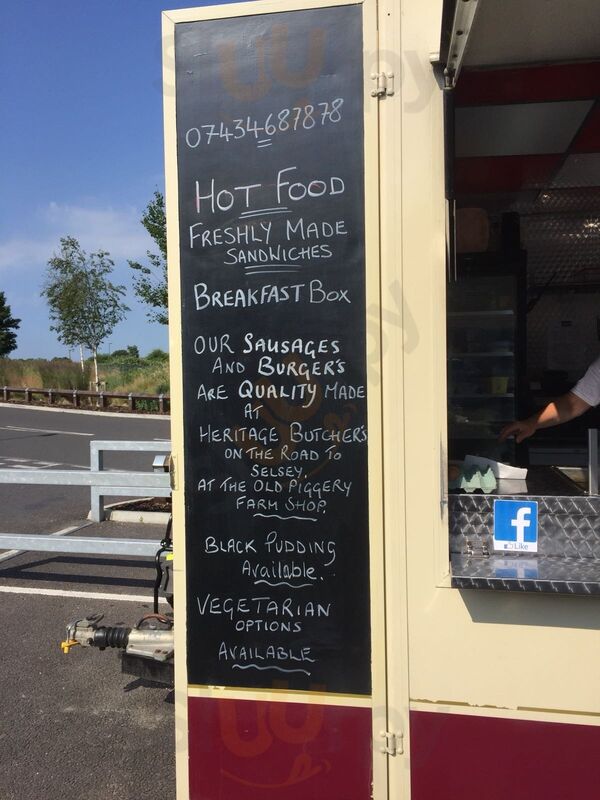 07434687878
HOT FOOD
FRESHLY MADE
SANDWICHES
BREAKFAST BOX
OUR SAUSAGES
AND BURGER'S
ARE QUALITY MADE
AT
HERITAGE BUTCHER'S
ON THE ROAD TO
SELSEY.
AT THE OLD PIGGERY
FARM SHOP.
BLACK PUDDING
Available.
VEGETARIAN
OPTIONS
AVAILABLE
f
Like